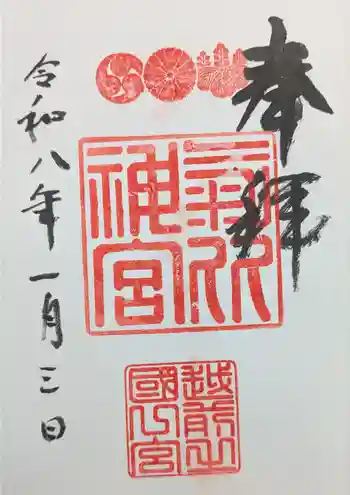 奉拝
氣比
神宮
越前之
國一宮
令和八年一月三日